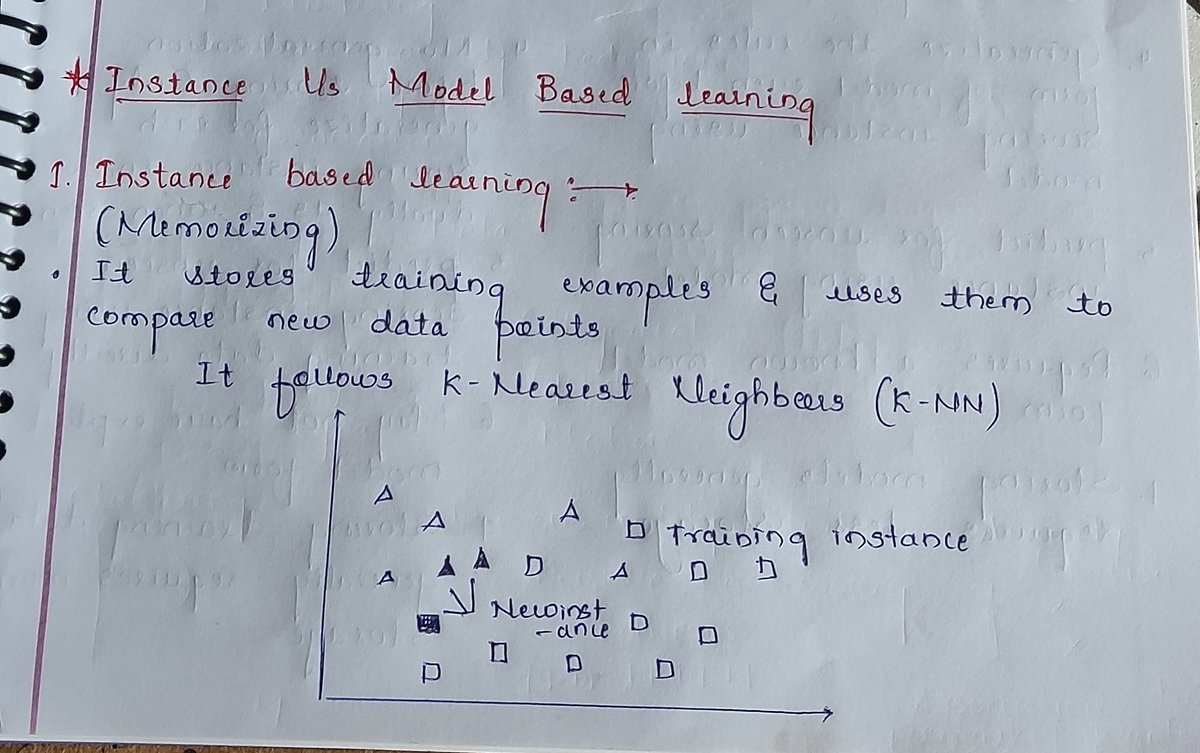 * Instance Vs Model Based learning
1. Instance based learning :→
(Memorizing)
• It stores training examples & uses them to
compare new data points
It follows K-Nearest Neighbours (K-NN)
Training instance
New inst
-ance